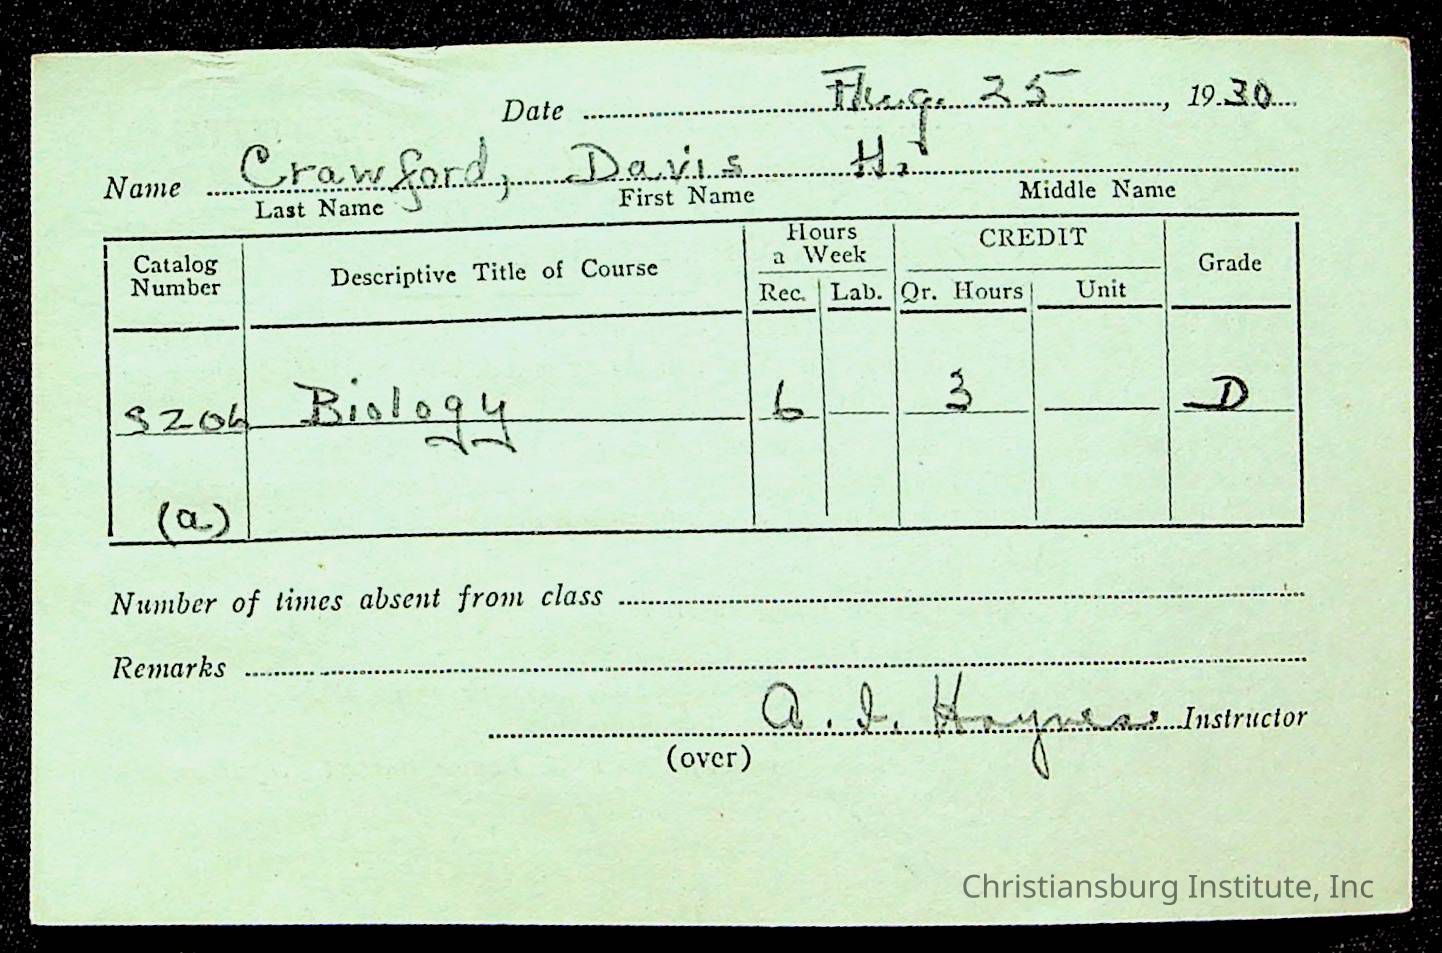 Date Aug. 25, 1930
Name Crawford, Davis H.
Last Name First Name Middle Name
Catalog Number Descriptive Title of Course Hours a Week CREDIT Grade
Rec. Lab. Qr. Hours Unit
Biology 6 3 D
(a)
Number of times absent from class
Remarks
A. I. Haynes Instructor
(over)
Christiansburg Institute, Inc